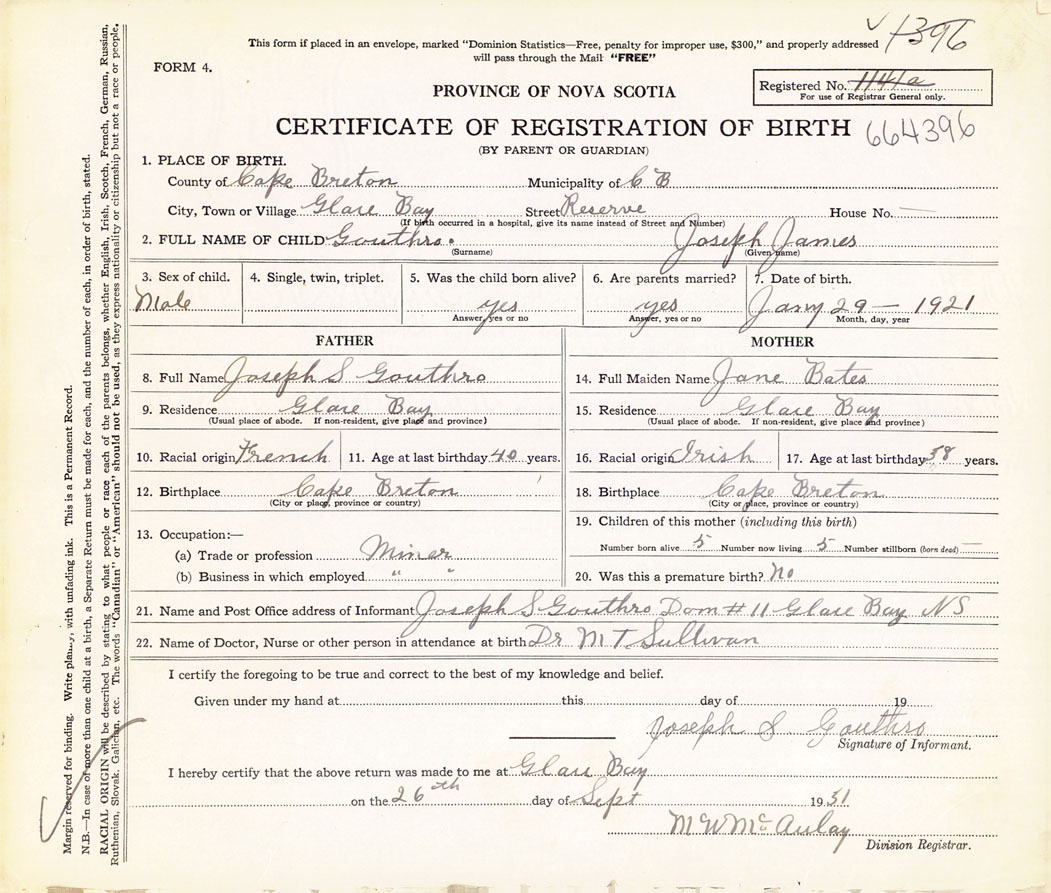 This form if placed in an envelope, marked "Dominion Statistics—Free, penalty for improper use, $300," and properly addressed
will pass through the Mail "FREE"
1396
FORM 4.
Registered No. 1141a
For use of Registrar General only.
PROVINCE OF NOVA SCOTIA
CERTIFICATE OF REGISTRATION OF BIRTH 664396
(BY PARENT OR GUARDIAN)
1. PLACE OF BIRTH.
County of Cape Breton Municipality of C B
City, Town or Village Glace Bay Street Reserve House No. —
(If birth occurred in a hospital, give its name instead of Street and Number)
2. FULL NAME OF CHILD Gouthro. Joseph James
(Surname) (Given name)
3. Sex of child. 4. Single, twin, triplet. 5. Was the child born alive? 6. Are parents married? 7. Date of birth.
Male yes yes Jany 29 — 1921
Answer, yes or no Answer, yes or no Month, day, year
FATHER MOTHER
8. Full Name Joseph S Gouthro 14. Full Maiden Name Jane Bates
9. Residence Glace Bay 15. Residence Glace Bay
(Usual place of abode. If non-resident, give place and province) (Usual place of abode. If non-resident, give place and province)
10. Racial origin French 11. Age at last birthday 40 years. 16. Racial origin Irish 17. Age at last birthday 38 years.
12. Birthplace Cape Breton 18. Birthplace Cape Breton
(City or place, province or country) (City or place, province or country)
19. Children of this mother (including this birth)
13. Occupation:—
Number born alive 5 Number now living 5 Number stillborn (born dead) —
(a) Trade or profession Miner
(b) Business in which employed " " 20. Was this a premature birth? No
21. Name and Post Office address of Informant Joseph S Gouthro Dom # 11 Glace Bay NS
22. Name of Doctor, Nurse or other person in attendance at birth Dr M T Sullivan
I certify the foregoing to be true and correct to the best of my knowledge and belief.
Given under my hand at this day of 19
Joseph S Gouthro
Signature of Informant.
I hereby certify that the above return was made to me at Glace Bay
on the 26th day of Sept 1931
M W McAulay
Division Registrar.
Margin reserved for binding. Write plainly, with unfading ink. This is a Permanent Record.
N.B.—In case of more than one child at a birth, a Separate Return must be made for each, and the number of each, in order of birth, stated.
RACIAL ORIGIN will be described by stating to what people or race each of the parents belongs, whether English, Irish, Scotch, French, German, Russian,
Ruthenian, Slovak, Galician, etc. The words "Canadian" or "American" should not be used, as they express nationality or citizenship but not a race or people.